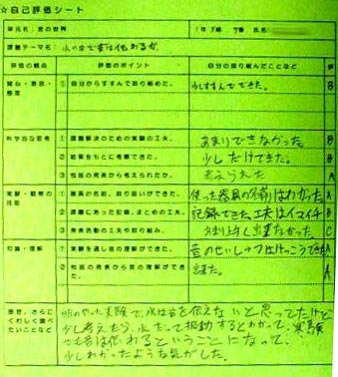 ☆自己評価シート
単元名：音の世界 1年 5組 7番 氏名
課題テーマ名：水の中で音は伝わるか
評価の観点 評価のポイント 自分の取り組んだことなど 評
関心・意欲・態度 ① 自分からすすんで取り組めた。 少しすすんでできた。 B
科学的な思考 ① 課題解決のための実験の工夫。 あまりできなかった B
② 結果をもとに考察できた。 少しだけできた。 B
③ 他班の発表から考えられたか。 考えられた A
実験・観察の技能 ① 器具の名前、取り扱いができた。 使った器具の名前はわかった。 A
② 課題にあった記録、まとめの工夫。 記録できた。工夫はイマイチ B
③ 発表活動の工夫や取り組み。 あまり上手く出来なかった C
知識・理解 ① 実験を通し音の理解ができた。 音のせいしつはけっこうできた A
② 他班の発表から音の理解ができた。 出来た。 A
感想、さらにくわしく調べたいことなど
班のやった実験で、水は音を伝えないと思ってたけど
少し考えたら、水だって振動するとわかって、実験
でも音は伝わるということになって、
少しわかったような気がした。